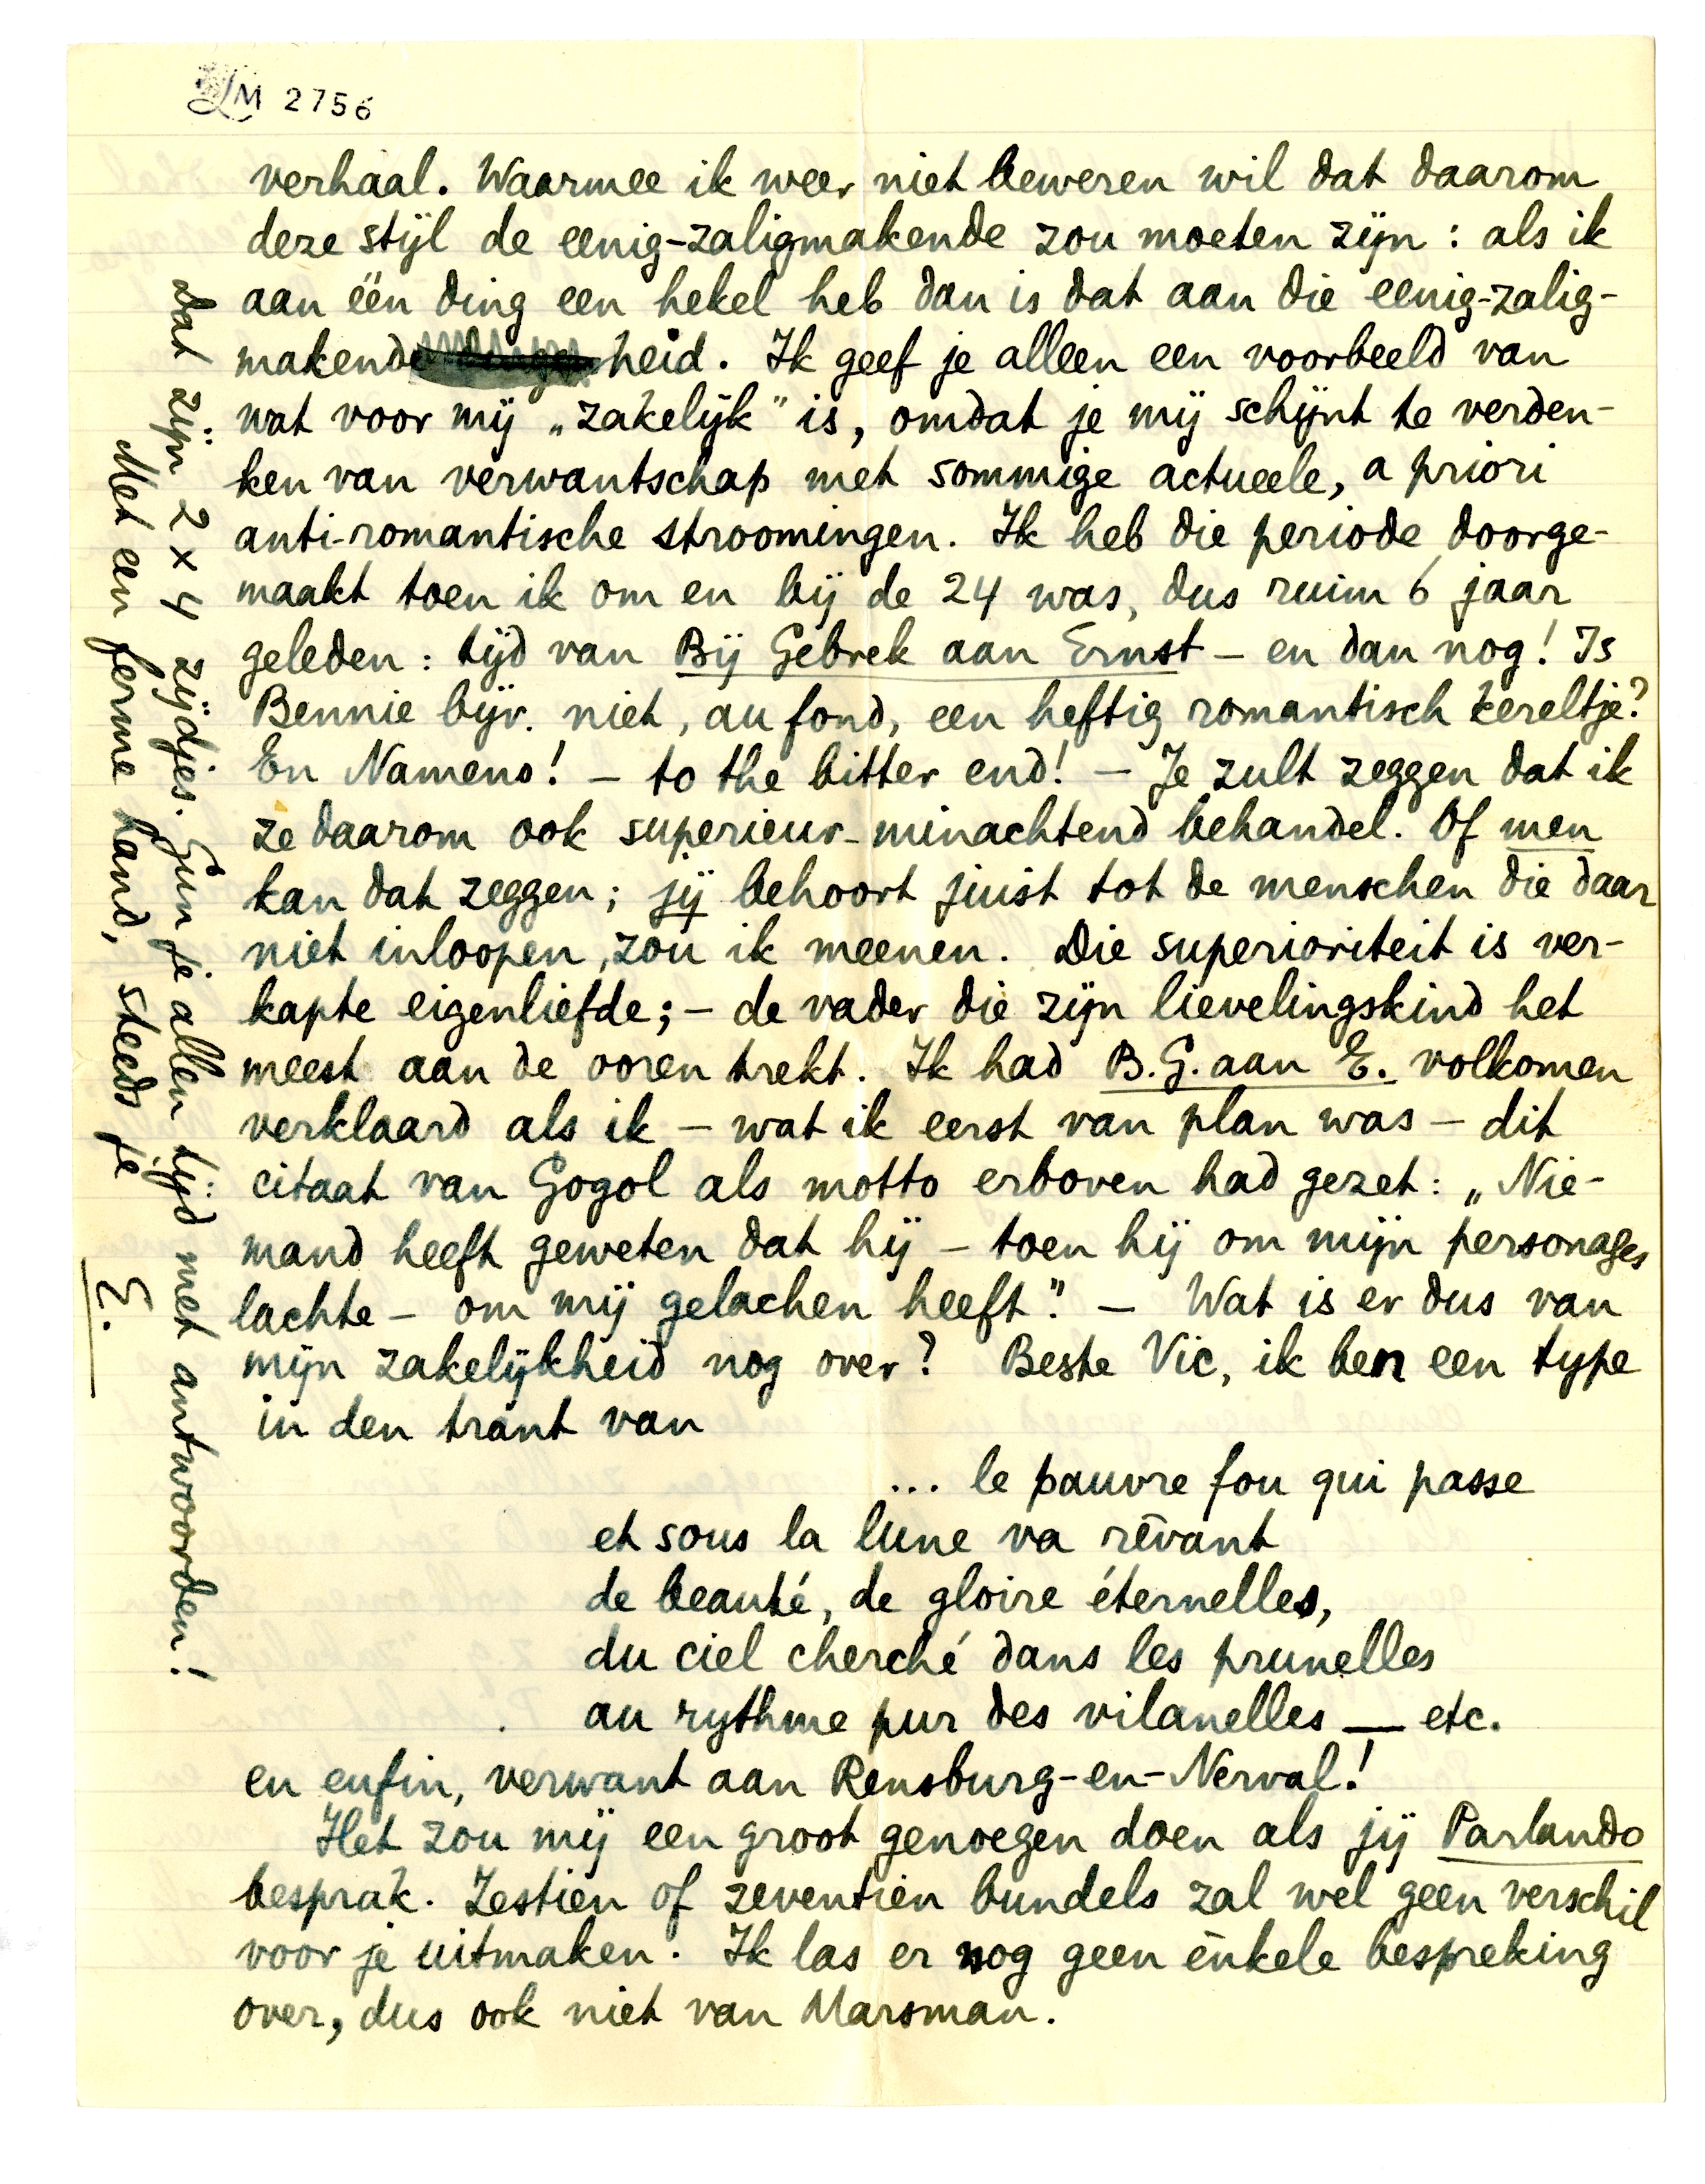 LM 2756
verhaal. Waarmee ik weer niet beweren wil dat daarom
deze stijl de eenig-zaligmakende zou moeten zijn : als ik
aan één ding een hekel heb dan is dat aan die eenig-zalig-
makende heid. Ik geef je alleen een voorbeeld van
wat voor mij „zakelijk" is, omdat je mij schijnt te verden-
ken van verwantschap met sommige actueele, a priori
anti-romantische stroomingen. Ik heb die periode doorge-
maakt toen ik om en bij de 24 was, dus ruim 6 jaar
geleden : tijd van Bij Gebrek aan Ernst – en dan nog! Is
Bennie bijv. niet, au fond, een heftig romantisch kereltje?
En Nameno! – to the bitter end! – Je zult zeggen dat ik
ze daarom ook superieur-minachtend behandel. Of men
kan dat zeggen; jij behoort juist tot de menschen die daar
niet inloopen, zou ik meenen. Die superioriteit is ver-
kapte eigenliefde; – de vader die zijn lievelingskind het
meest aan de ooren trekt. Ik had B.G. aan E. volkomen
verklaard als ik – wat ik eerst van plan was – dit
citaat van Gogol als motto erboven had gezet: „Nie-
mand heeft geweten dat hij – toen hij om mijn personages
lachte – om mij gelachen heeft". – Wat is er dus van
mijn zakelijkheid nog over? Beste Vic, ik ben een type
in den trant van
... le pauvre fou qui passe
et sous la lune va rêvant
de beauté, de gloire éternelles,
du ciel cherché dans les prunelles
au rythme pur des vilanelles — etc.
en enfin, verwant aan Rensburg-en-Nerval!
Het zou mij een groot genoegen doen als jij Parlando
besprak. Zestien of zeventien bundels zal wel geen verschil
voor je uitmaken. Ik las er nog geen enkele bespreking
over, dus ook niet van Marsman.
Dat zijn 2 x 4 zijdjes. Gun je allen tijd met antwoorden!
Met een ferme hand, steeds je
E.